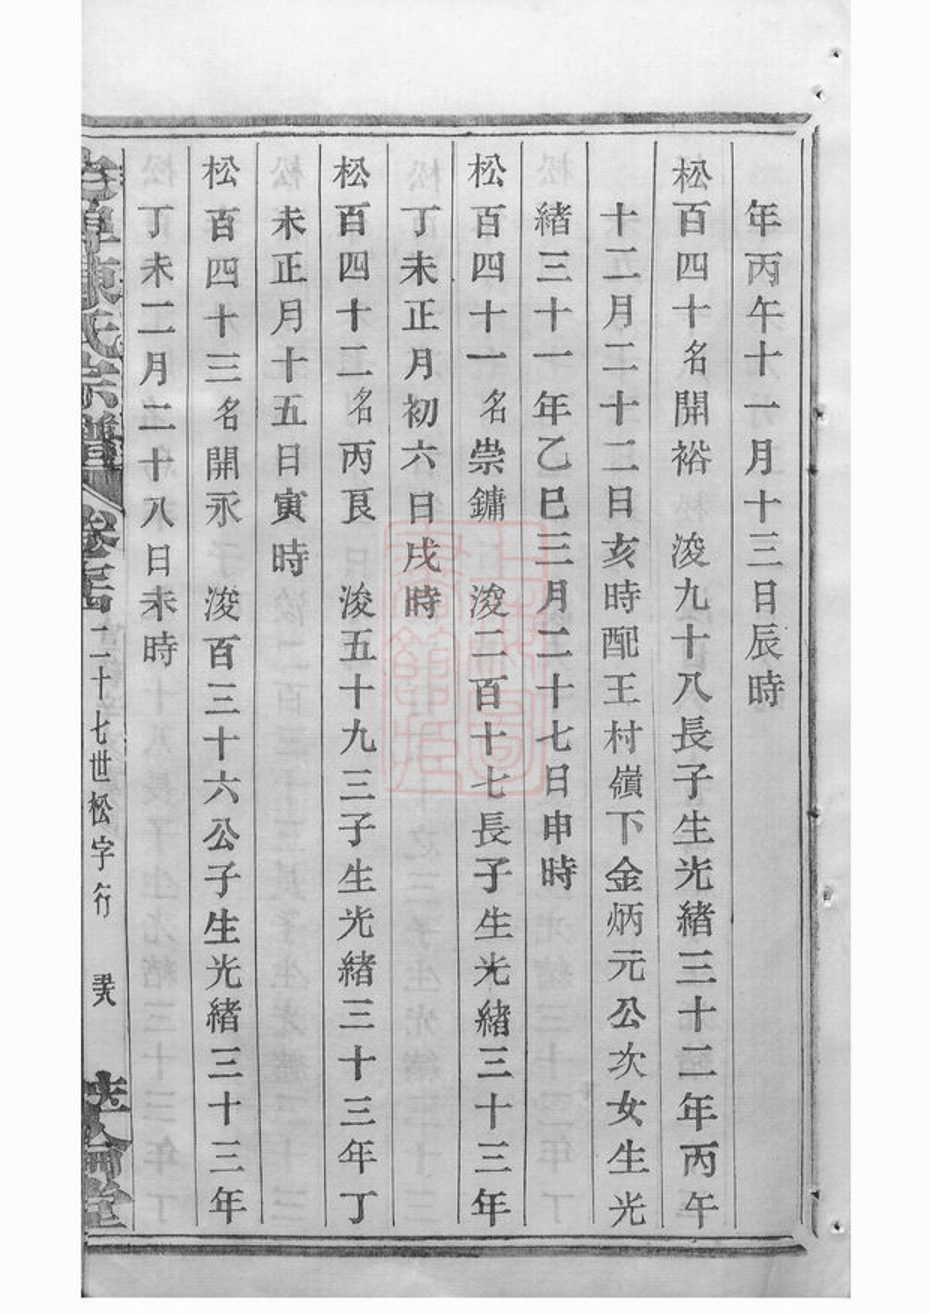 年丙午十一月十三日辰時
松百四十名開裕　浚九十八長子生光緒三十二年丙午
十二月二十二日亥時配王村嶺下金炳元公次女生光
緒三十一年乙巳三月二十七日申時
松百四十一名崇鏞　浚二百十七長子生光緒三十三年
丁未正月初六日戌時
松百四十二名丙艮　浚五十九三子生光緒三十三年丁
未正月十五日寅時
松百四十三名開永　浚百三十六公子生光緒三十三年
丁未二月二十八日未時
氏宗譜
二十七世松字行
倫堂